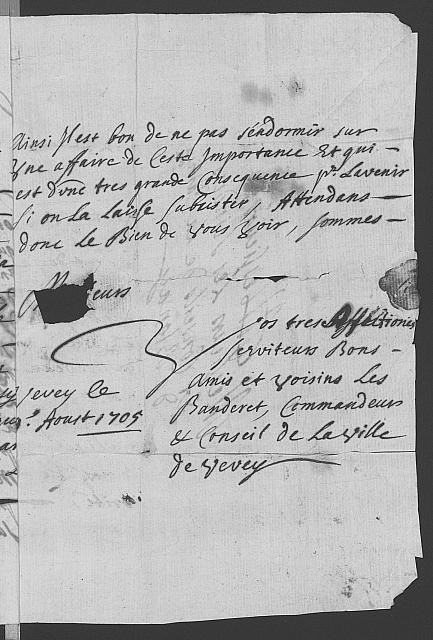 Ainsi Jl est bon de ne pas séndormir sur
Une affaire de Ceste Importance Et qui
est d'vne tres grande Consequence pr Lavenir
Si on La Laisse Subsister, Attendans
donc Le Bien de vous Voir, sommes
Vos tres Affectionés
Serviteurs Bons
Amis et voisins Les
Banderet, Commandeurs
& Conseil de La Ville
de Vevey
Vevey Ce
Aoust 1705